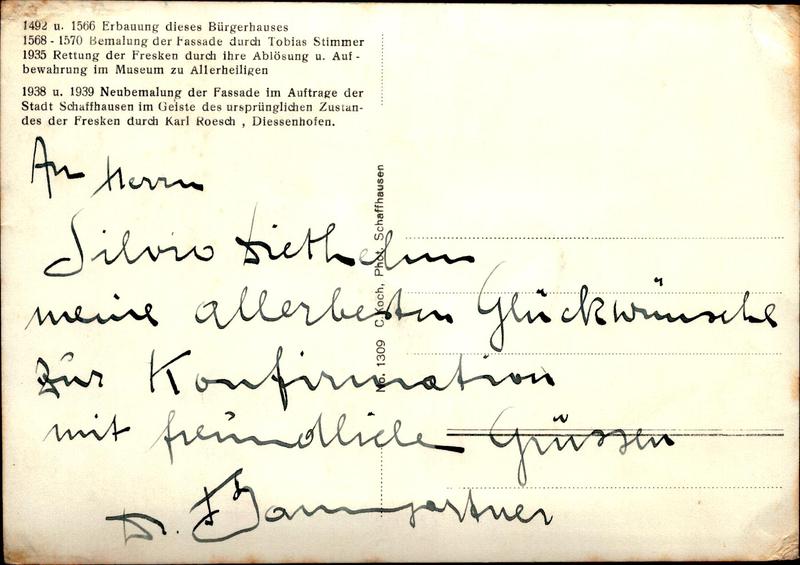 1492 u. 1566 Erbauung dieses Bürgerhauses
1568 - 1570 Bemalung der Fassade durch Tobias Stimmer
1935 Rettung der Fresken durch ihre Ablösung u. Auf-
bewahrung im Museum zu Allerheiligen
1938 u. 1939 Neubemalung der Fassade im Auftrage der
Stadt Schaffhausen im Geiste des ursprünglichen Zustan-
des der Fresken durch Karl Roesch , Diessenhofen.
No. 1309 C. Koch, Phot. Schaffhausen
An Herrn
Silvio Diethelm
meine allerbesten Glückwünsche
zur Konfirmation
mit freundliche Grüssen
Dr. Baumgartner